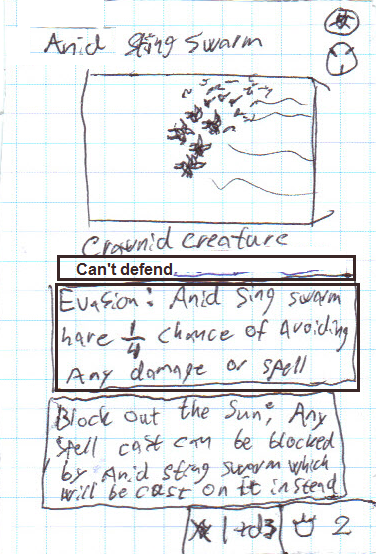 Anid Sting Swarm
Crawnid Creature
Can't defend
Evasion: Anid Sing swarm
have 1/4 chance of Avoiding
Any damage or spell
Block out the Sun; Any
spell cast can be blocked
by Anid sting swarm which
will be cast on it instead
1+d3 2